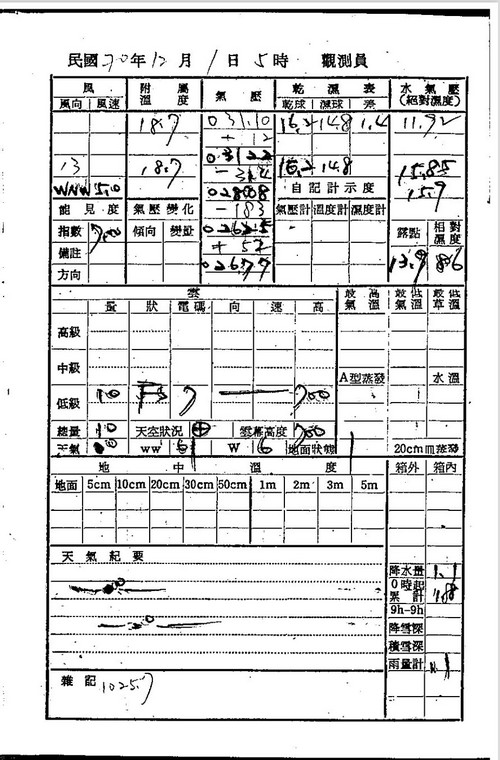 民國70年12月1日5時 觀測員
風 附屬溫度 氣壓 乾濕表 水氣壓(絕對濕度)
風向 風速 乾球 濕球 差
18.7 03110 16.2 14.8 1.4 11.92
+ 12
13 18.7 03122 16.2 14.8 15.85
WNW 5.0 自記計示度 15.9
能見度 氣壓變化 - 183 氣壓計 溫度計 濕度計
指數 傾向 變量 露點 相對濕度
備註 + 52 13.9 86
方向 02677
雲 最高氣溫 最低氣溫 最低草溫
量 狀 電碼 向 速 高
高級
中級 A型蒸發 水溫
低級 10 Fs 7 700
總量 10 天空狀況 ⊕ 雲幕高度 700
天氣 ww 61 W 6 地面狀態 1 20cm皿蒸發
地中溫度 箱外 箱內
地面 5cm 10cm 20cm 30cm 50cm 1m 2m 3m 5m
天氣紀要
降水量 1.1
0時起累計
9h-9h
降雪深
積雪深
雨量計
雜記 1025.7